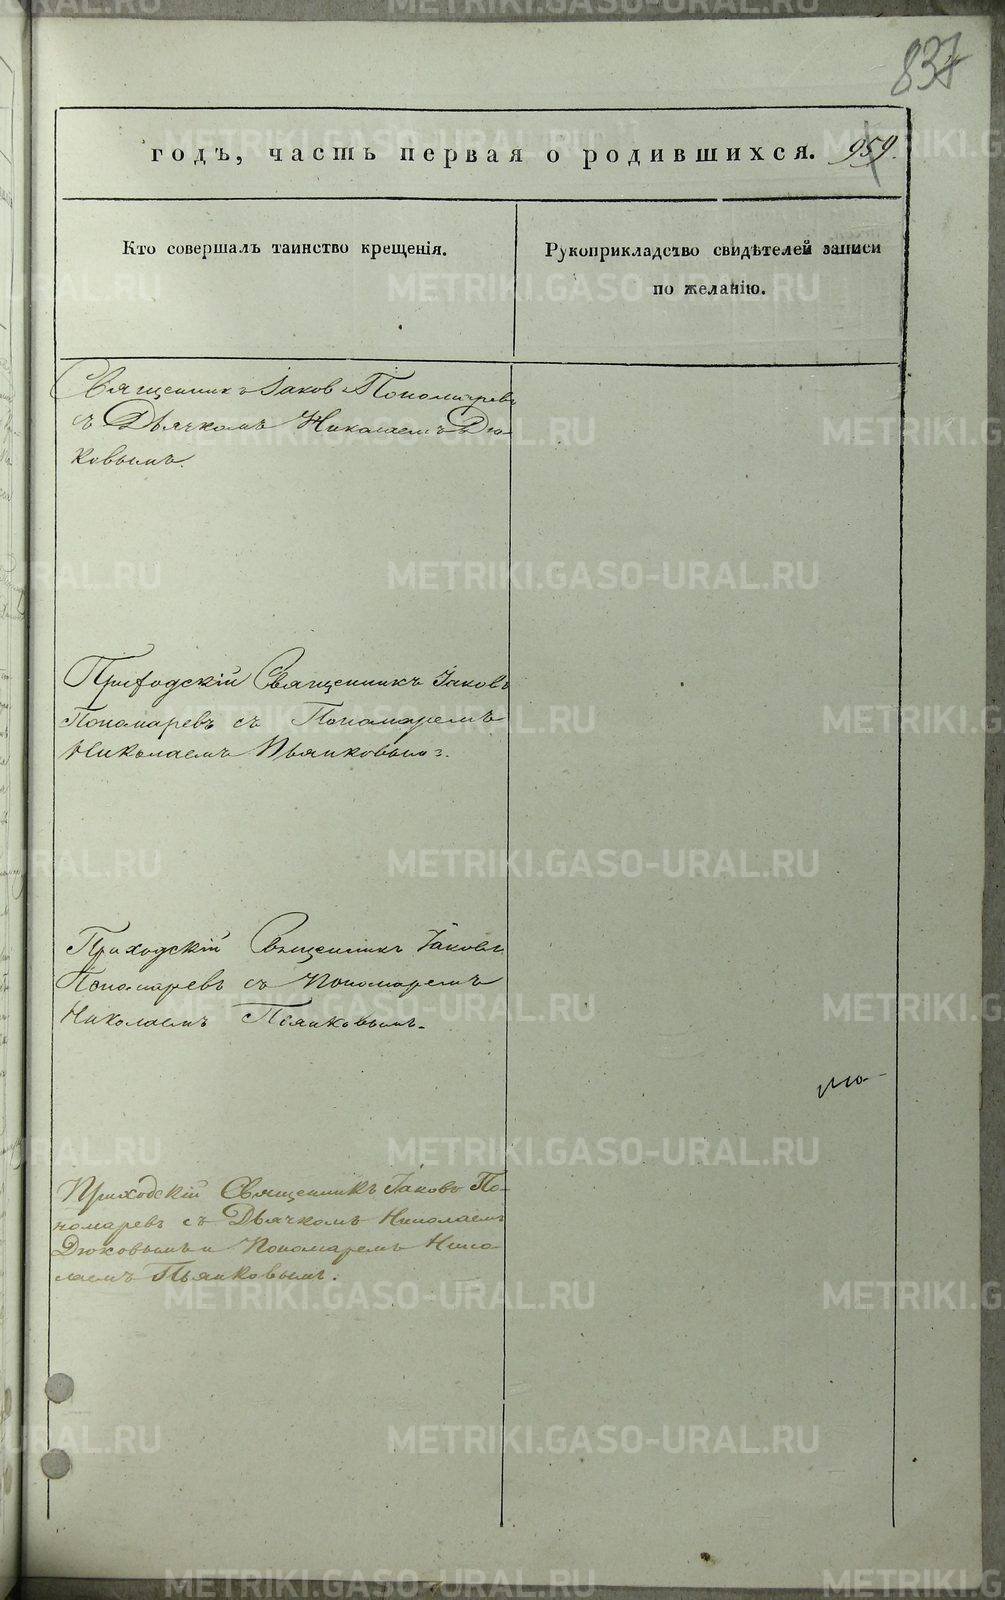 837
годъ, часть первая о родившихся. 959.
Кто совершалъ таинство крещенія.
Рукоприкладство свидѣтелей записи
по желанію.
Священникъ Іаковъ Пономаревъ
съ Дьячкомъ Николаемъ Дю-
ковымъ.
Приходскій Священникъ Іаковъ
Пономаревъ съ Пономаремъ
Николаемъ Пьянковымъ.
Приходскій Священникъ Іаковъ
Пономаревъ съ Пономаремъ
Николаемъ Пьянковымъ.
Приходскій Священникъ Іаковъ По-
номаревъ съ Дьячкомъ Николаемъ
Дюковымъ и Пономаремъ Нико-
лаемъ Пьянковымъ.
METRIKI.GASO-URAL.RU